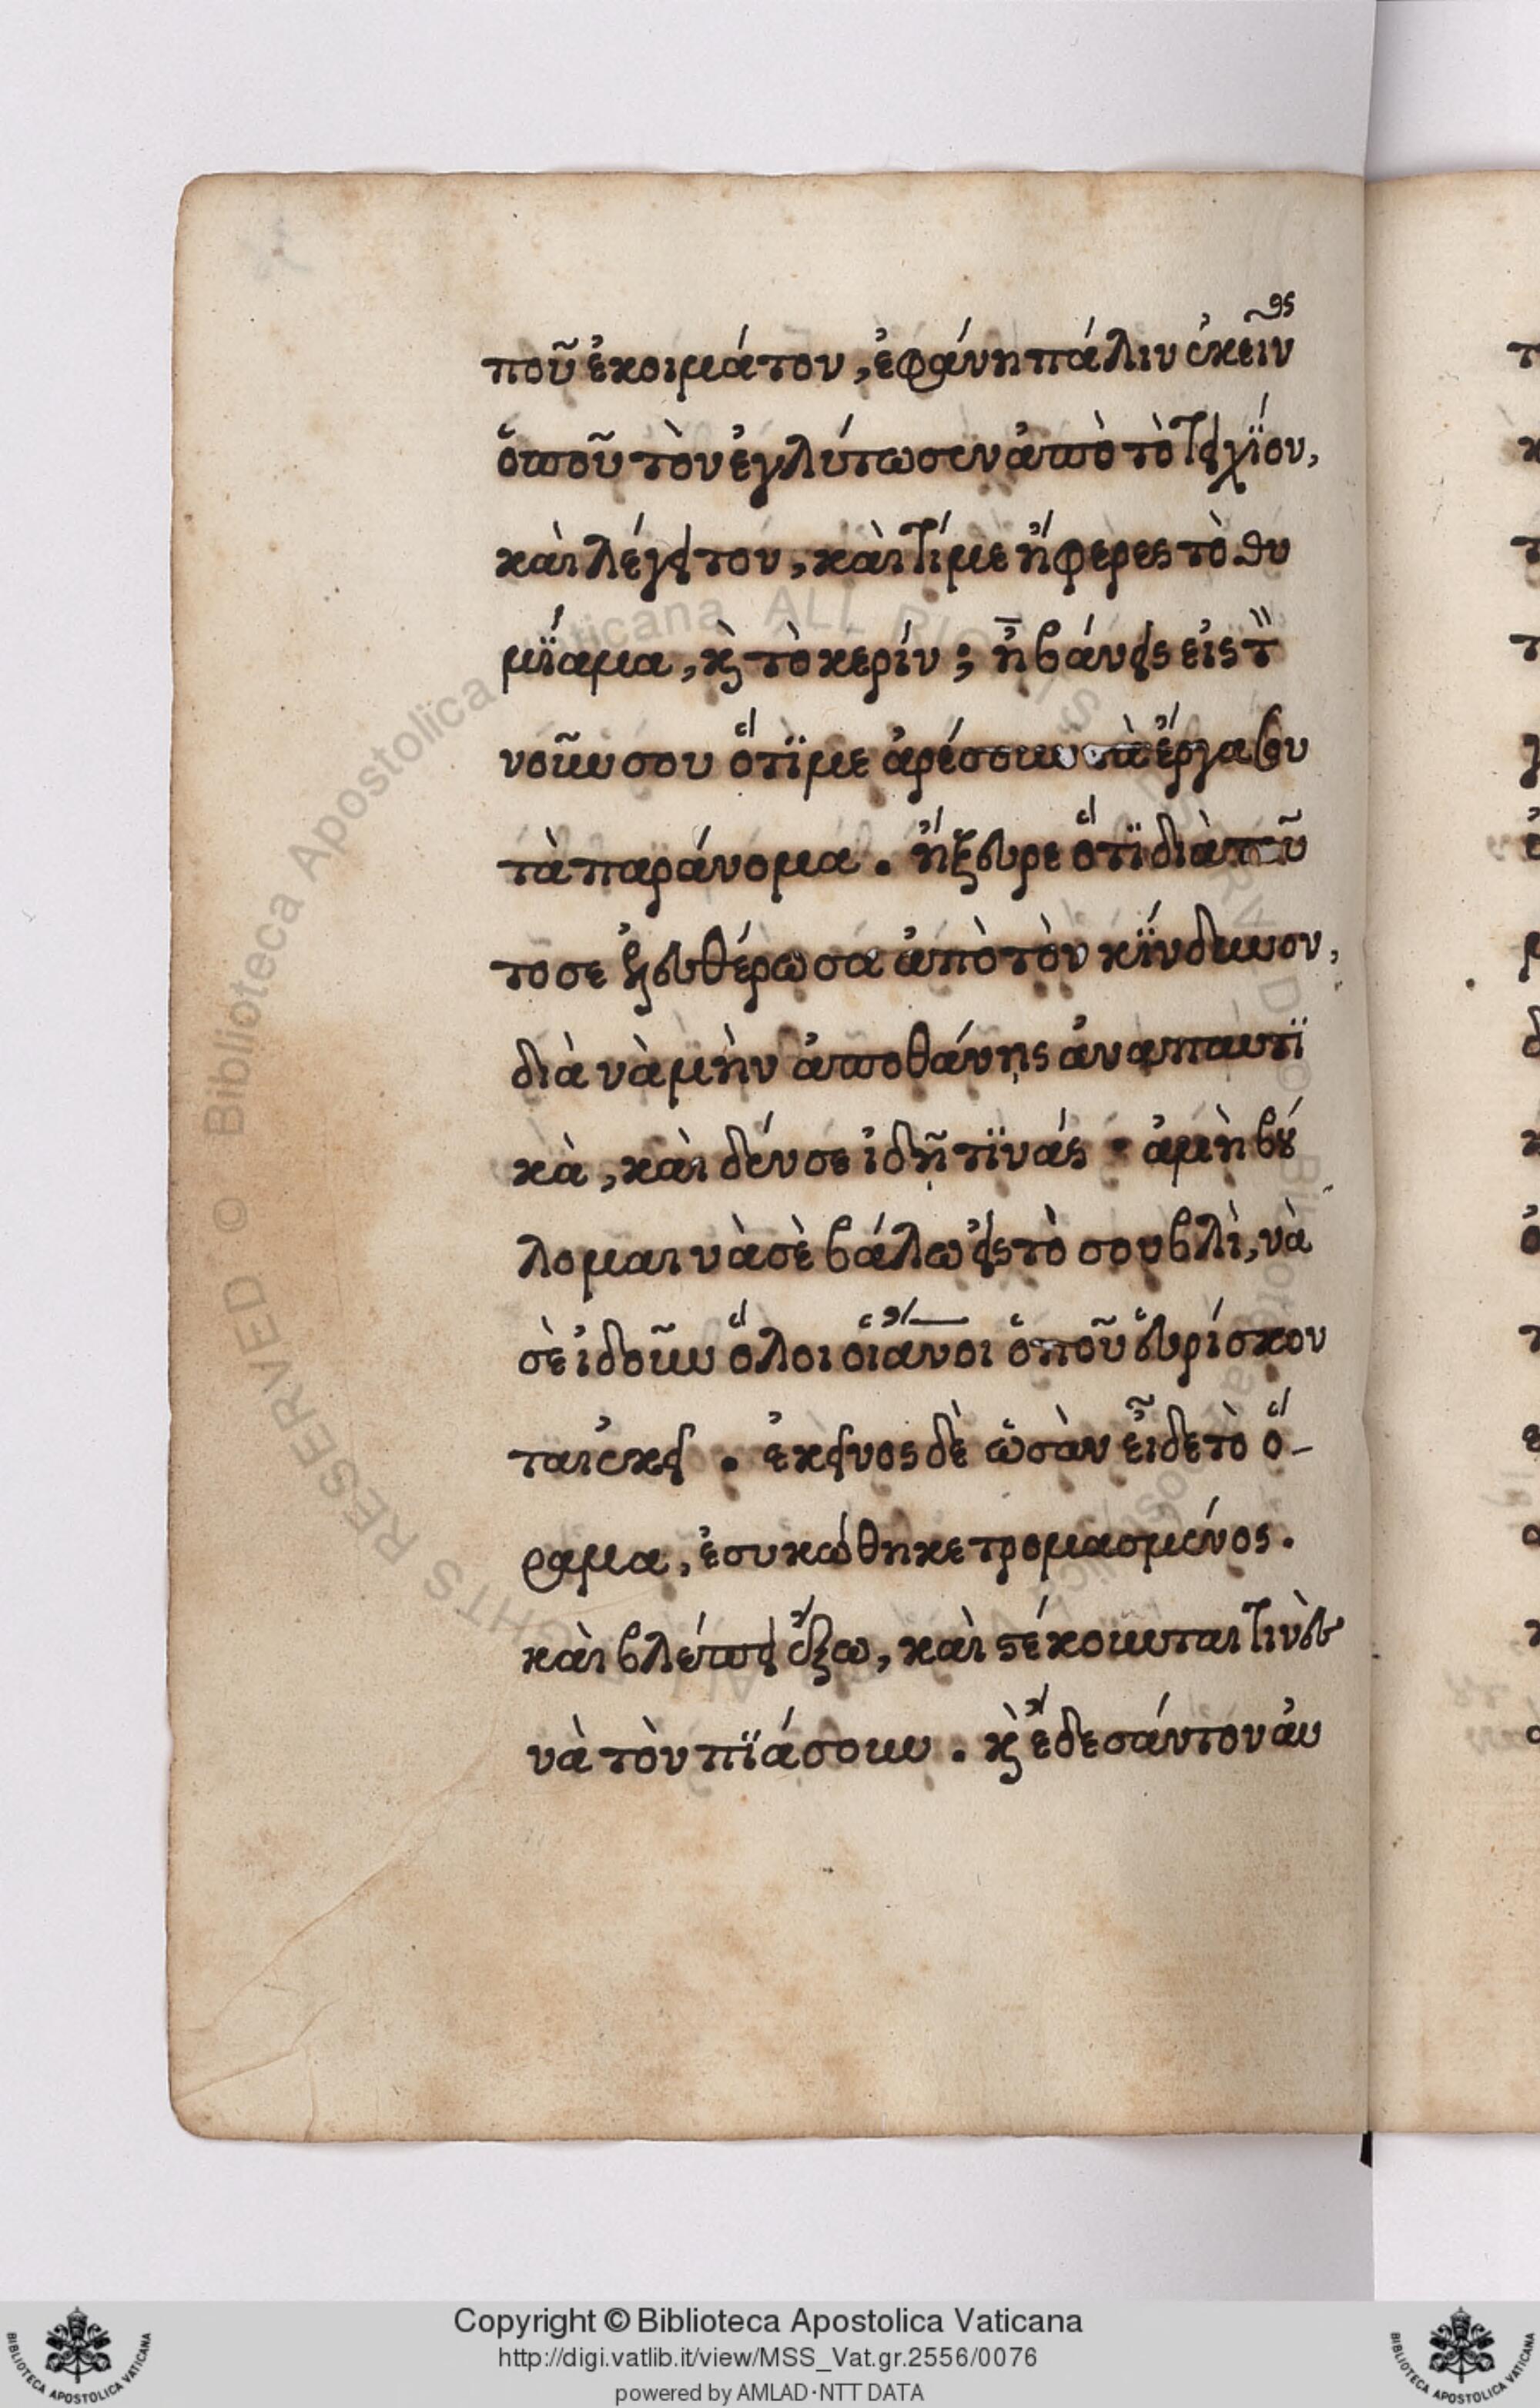 ποῦ ἐκοιμάτον, ἐφάνη πάλιν ἐκεῖνος
ὁποῦ τὸν ἐγλύτωσεν ἀπὸ τὸ τειχίον,
καὶ λέγει του, καὶ τί με ἤφερες τὸ θυ
μίαμα, κὶ τὸ κερίν; ἠ βάνεις εἰς τὸν
νοῦν σου ὅτι με ἀρέσουν τὰ ἔργα σου
τὰ παράνομα. ἤξευρε ὅτι διὰ τοῦ
το σε ἐλευθέρωσα ἀπὸ τὸν κίνδυνον,
διὰ νὰ μὴν ἀποθάνῃς ἀναπαυτι
κὰ, καὶ δέν σε ἰδῇ τινάς. ἀμὴ βού
λομαι νὰ σὲ βάλω εἰς τὸ σουβλὶ, νὰ
σὲ ἰδοῦν ὅλοι οἱ ἄνοι ὁποῦ εὑρίσκον
ται ἐκεῖ. ἐκεῖνος δὲ ὡσὰν εἶδε τὸ ὅ-
ραμα, ἐσυκώθηκε τρομασμένος.
καὶ βλέπει ἔξω, καὶ στέκουνται τινὲς
νὰ τὸν πιάσουν. κὶ ἔδεσάν τον ἀν
Copyright © Biblioteca Apostolica Vaticana
http://digi.vatlib.it/view/MSS_Vat.gr.2556/0076
powered by AMLAD·NTT DATA